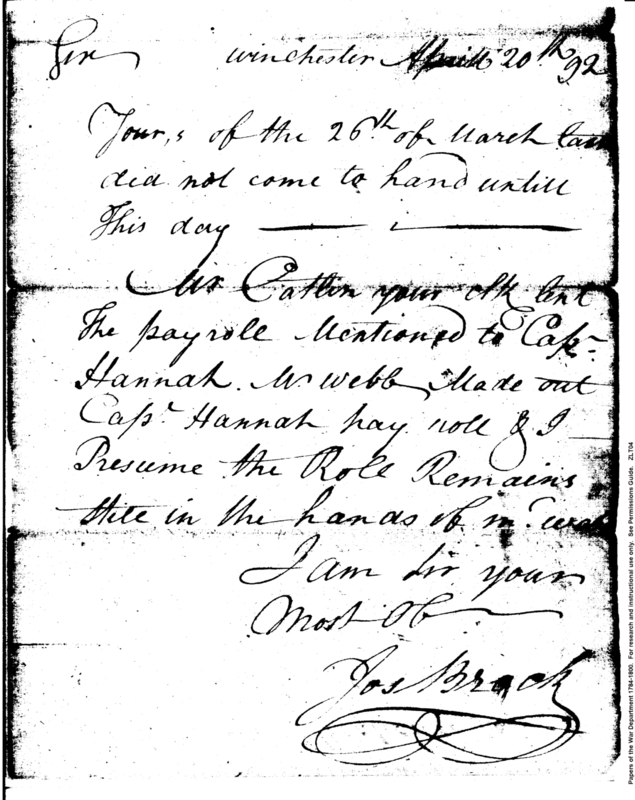 Sir Winchester April 20th 92
Your,s of the 26th of March last
did not come to hand untill
This day
Mr Catlin your Clk lent
The payroll Mentioned to Capt
Hannah. Mr Webb Made out
Capt Hannah pay roll & I
Presume the Role Remains
still in the hands of Mr Webb
I am Sir your
Most Ob
Jos Brock
Papers of the War Department 1784-1800. For research and instructional use only. See Permissions Guide. ZL704